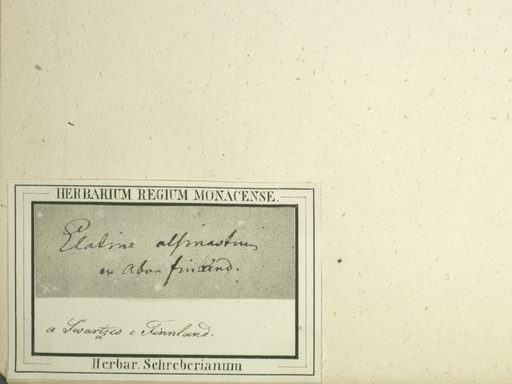 HERBARIUM REGIUM MONACENSE.
Elatine alsinastrum
ex Aboa finland.
a Swartzio e Finnland.
Herbar. Schreberianum